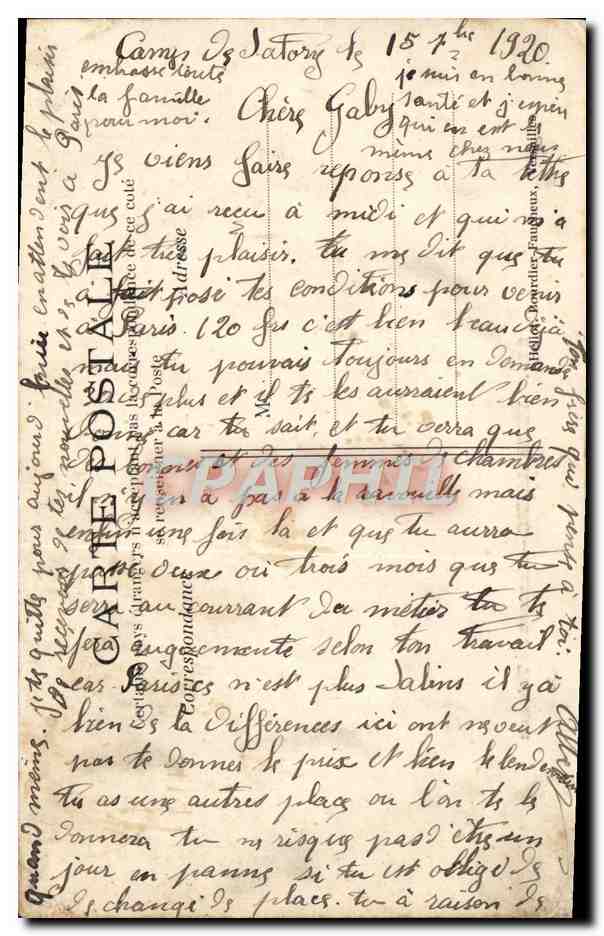 Camp de Satory le 15 7bre 1920
je suis en bonne
santé et j'espère
qui en est de
même chez nous
embrasse toute
la famille
pour moi.
Chère Gaby
Je viens faire reponse à ta lettre
que j'ai reçu à midi et qui m'a
fait très plaisir. tu me dit que tu
a fait posé tes conditions pour venir
à Paris. 120 frs c'est bien beau déjà
mais tu pouvais toujours en demandé
plus et il te les aurraient bien
donné car tu sait et tu verra que
et des femmes de chambres
il n'y en à pas à la
mais
enfin une fois la et que tu aurra
passé deux où trois mois que tu
sera au courrant du métier tu te
fera augementé selon ton travail
car Paris ce n'est plus Salins il y a
bien de la différences ici ont ne veut
pas te donner le prix et bien le lendemain
tu as une autres place ou l'on te le
donnera tu ne risque pas d'être un
jour en panne si tu est obligé de
de changé de place. tu à raison de
quand même. je te quitte pour aujourd'hui en attendent le plaisir
de recevoir de tes nouvelles et de te voir à Paris.
Ton frère qui pense à toi
CARTE POSTALE
Certains pays étrangers n'acceptent pas la correspondance de ce côté
se renseigner à la Poste
Correspondance
Adresse
M
CPAPHIL